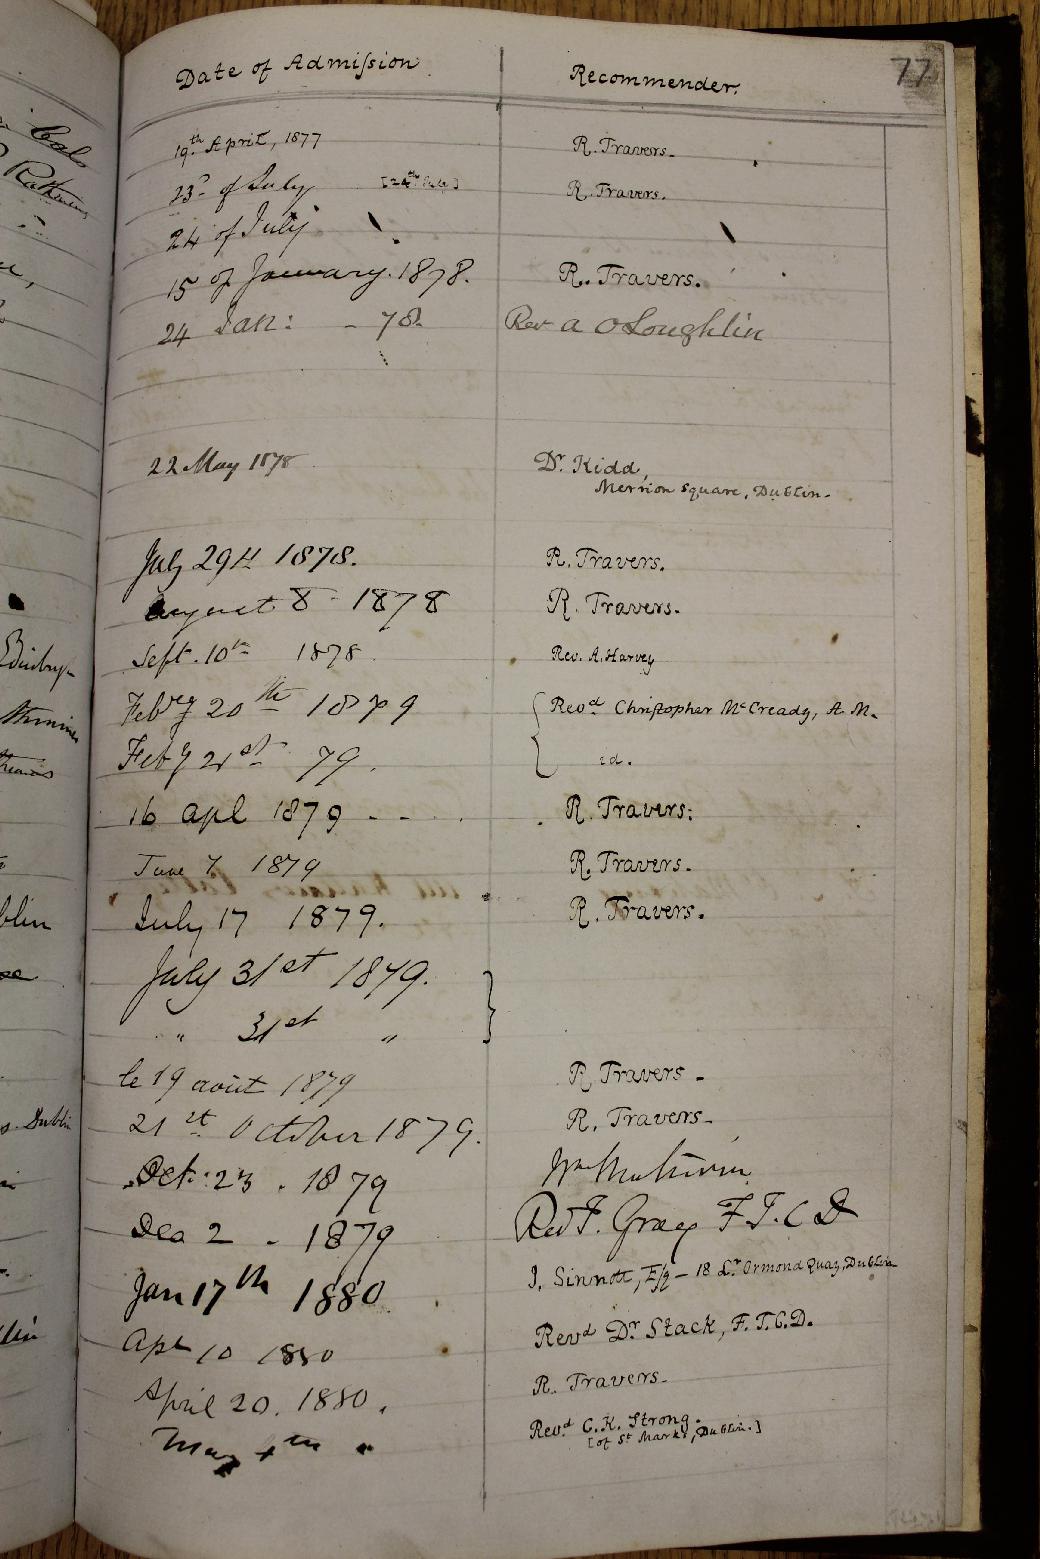 77
Date of Admission Recommender.
19th April, 1877 R. Travers.
23rd of July [24th July] R. Travers.
24 of July
15 of January. 1878. R. Travers.
24 Jan: - 78. Rev A O'Loughlin
22 May 1878 Dr. Kidd,
Merrion Square, Dublin.
July 29th 1878. R. Travers.
August 8 - 1878 R. Travers.
Sept. 10th 1878 Rev. A. Harvey
Febry 20th 1879 Revd Christopher McCready, A.M.
Feby 21st 79. id.
16 Apl 1879 - - R. Travers:
June 7 1879 R. Travers.
July 17 1879. R. Travers.
July 31st 1879.
" 31st "
le 19 août 1879 R. Travers -
21st October 1879. R. Travers.
Oct: 23. 1879 Wm
Dec 2 - 1879 Revd F. Gray F.T.C.D
Jan 17th 1880 J. Sinnott, Esq - 18 Lr. Ormond Quay, Dublin
Apl 10 1880 Revd Dr Stack, F.T.C.D.
April 20. 1880. R. Travers.
May 4th " Revd C.K. Strong.
[of St Mark's, Dublin.]
Edinburgh
Dublin